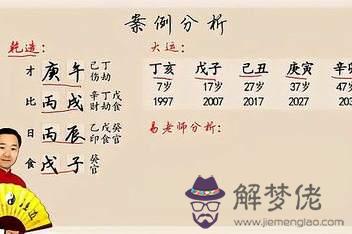 案例分析
乾造： 大运：
才 庚午 己丁 伤劫
比 丙戌 辛丁戊 财劫食
日 丙辰 乙戊癸 印食官
食 戊子 癸 官
丁亥 戊子 己丑 庚寅 辛
7岁 17岁 27岁 37岁 47岁
1997 2007 2017 2027 203
易老师分析：
解梦佬
www.jiemenglao.com